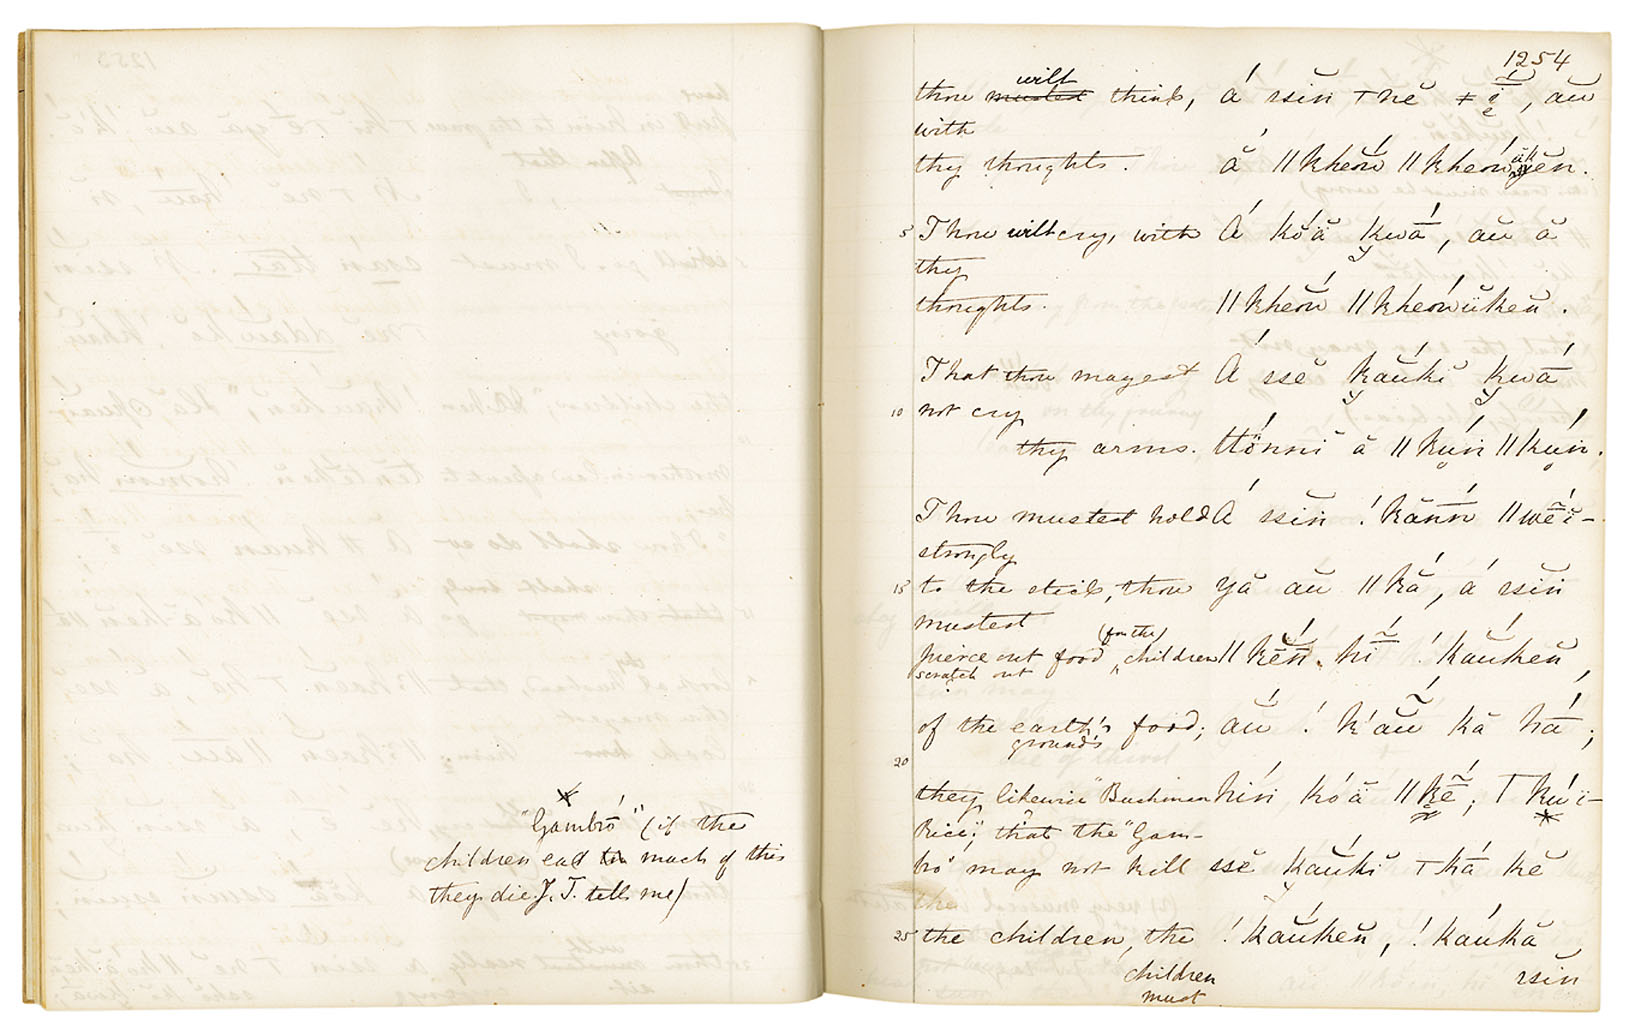 "Gambró" (if the
children eat much of this
they die J.T. tells me)
1254
wilt
thou mustest think, á ssĭn ǀnĕ ǂĭ, aŭ
with
thy thoughts. ă ǁkheŏw ǁkheówŭkĕn.
5 Thou wilt cry, with Á kóä kwá, aŭ ă
thy
thoughts. ǁkheŏw ǁkheówŭkĕn.
That thou mayest Á ssĕ kaŭkĭ kwá
10 not cry
thy arms. ttŏnnĭ ă ǁkún ǁkún.
Thou mustest hold Á ssĭn !kănn ǁwéï-
strongly
15 to the stick, thou yă aŭ ǁkă, á ssĭn
mustest
pierce out food (for the) children ǁkĕn hĭ !kaŭkĕn
scratch out
of the earth's food; aŭ !k'aŭ kă há;
ground's
20
they likewise "Bushman hín kóä ǁkĕ; ǀkúï-
Rice"; that the "Gam-
bró" may not kill ssĕ kaŭkĭ ǀkă kĕ
the
25 the children, the !kaŭkĕn, !kaúkă
children ssĭn
must